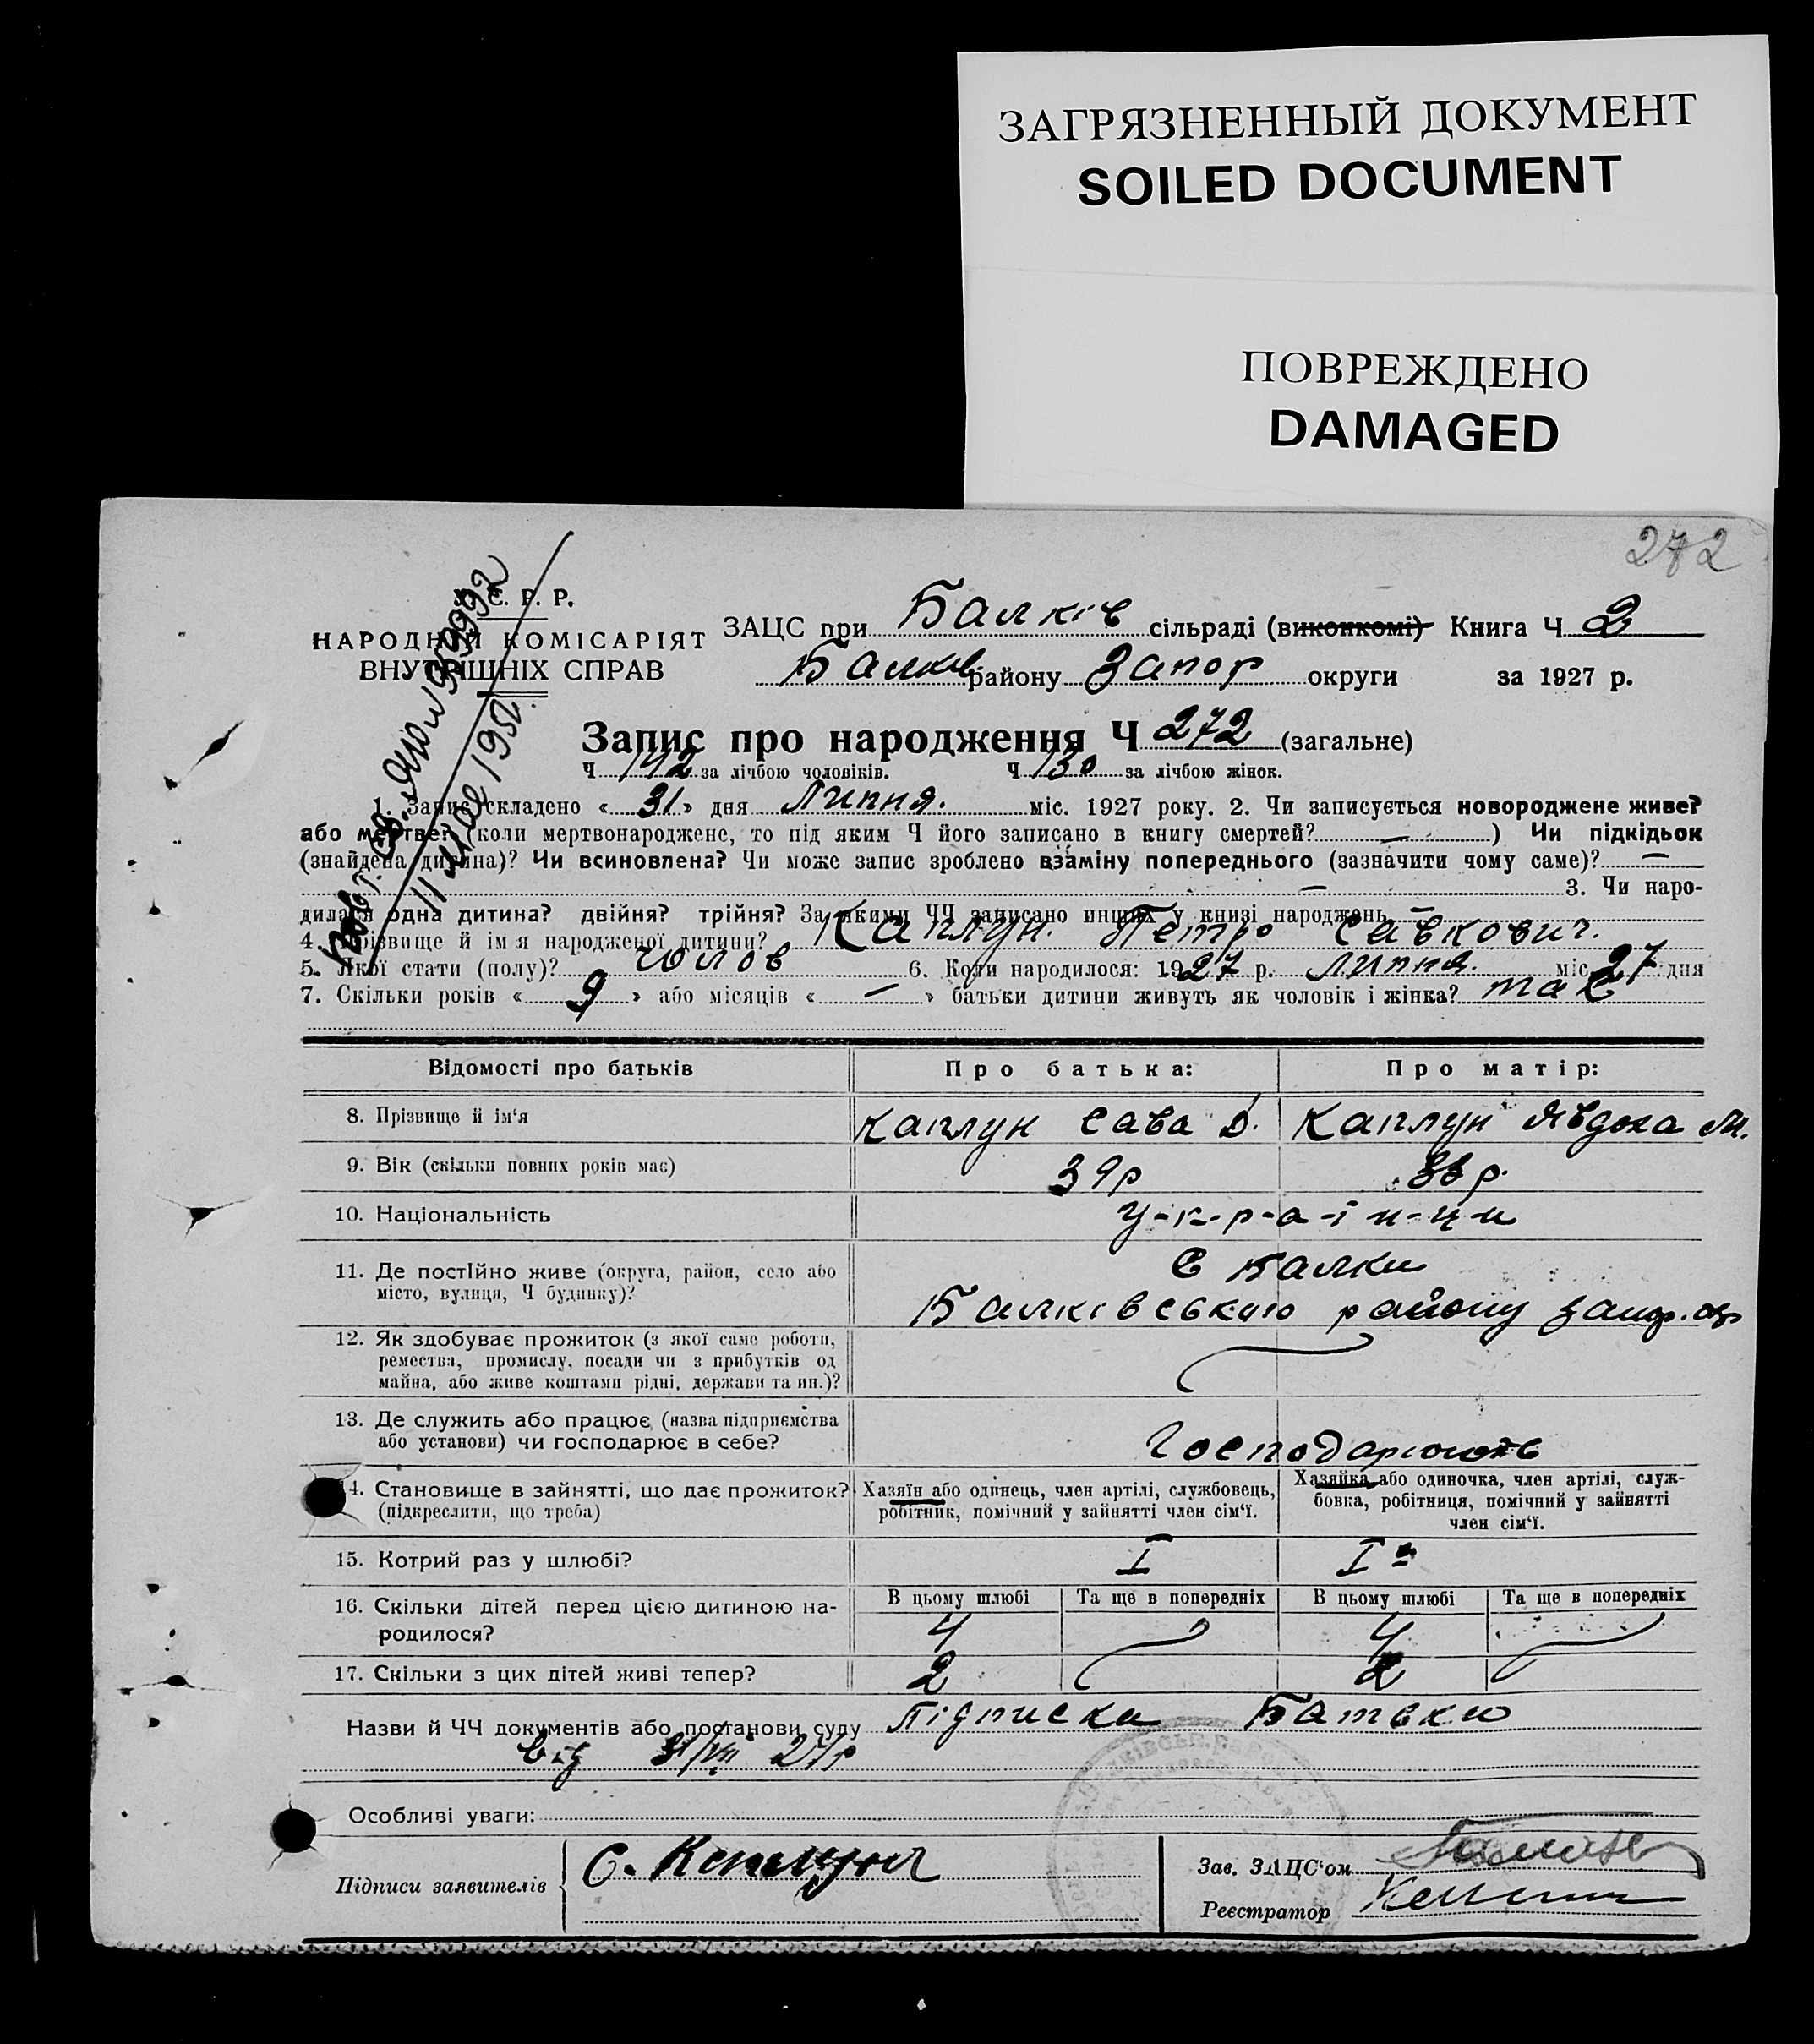 ЗАГРЯЗНЕННЫЙ ДОКУМЕНТ
SOILED DOCUMENT
ПОВРЕЖДЕНО
DAMAGED
272
С. Р. Р.
НАРОДНІЙ КОМІСАРІЯТ
ВНУТРІШНІХ СПРАВ
11 мае 1952
ЗАЦС при Балків сільраді (виконкомі) Книга Ч 2
Балків району Запор округи за 1927 р.
Запис про народження Ч 272 (загальне)
Ч 142 за лічбою чоловіків. Ч 130 за лічбою жінок.
1. Запис складено « 31 » дня Липня. міс. 1927 року. 2. Чи записується новороджене живе?
або мертве? (коли мертвонароджене, то під яким Ч його записано в книгу смертей? — ) Чи підкідьок
(знайдена дитина)? Чи всиновлена? Чи може запис зроблено взаміну попереднього (зазначити чому саме)? —
— 3. Чи наро-
дилася одна дитина? двійня? трійня? За якими ЧЧ записано инших у книзі народжень —
4. Прізвище й ім'я народженої дитини? Каплун. Петро Савкович.
5. Якої стати (полу)? чолов 6. Коли народилося: 1927 р. липня. міс. 27 дня
7. Скільки років « 9 » або місяців « — » батьки дитини живуть як чоловік і жінка? так
Відомості про батьків Про батька: Про матір:
8. Прізвище й ім'я Каплун Сава Д. Каплун Явдоха М.
9. Вік (скільки повних років має) 39р 33 р.
10. Національність У-к-р-а-ї-н-ц-и
11. Де постійно живе (округа, район, село або С Балки
місто, вулиця, Ч будинку)? Балківського району Запор. окр
12. Як здобуває прожиток (з якої саме роботи,
ремества, промислу, посади чи з прибутків од
майна, або живе коштами рідні, держави та ин.)?
13. Де служить або працює (назва підприємства
або установи) чи господарює в себе? Господарюють
14. Становище в зайнятті, що дає прожиток? Хазяїн або одінець, член артілі, службовець, Хазяйка або одиночка, член артілі, служ-
(підкреслити, що треба) робітник, помічний у зайнятті член сім'ї. бовка, робітниця, помічний у зайнятті
член сім'ї.
15. Котрий раз у шлюбі? I I
16. Скільки дітей перед цією дитиною на- В цьому шлюбі Та ще в попередніх В цьому шлюбі Та ще в попередніх
родилося? 4 4
17. Скільки з цих дітей живі тепер? 2 2
Назви й ЧЧ документів або постанови суду Підписка Батька
від 31/VII 27р
Особливі уваги:
Підписи заявителів С. Каплун
Зав. ЗАЦС'ом
Реєстратор